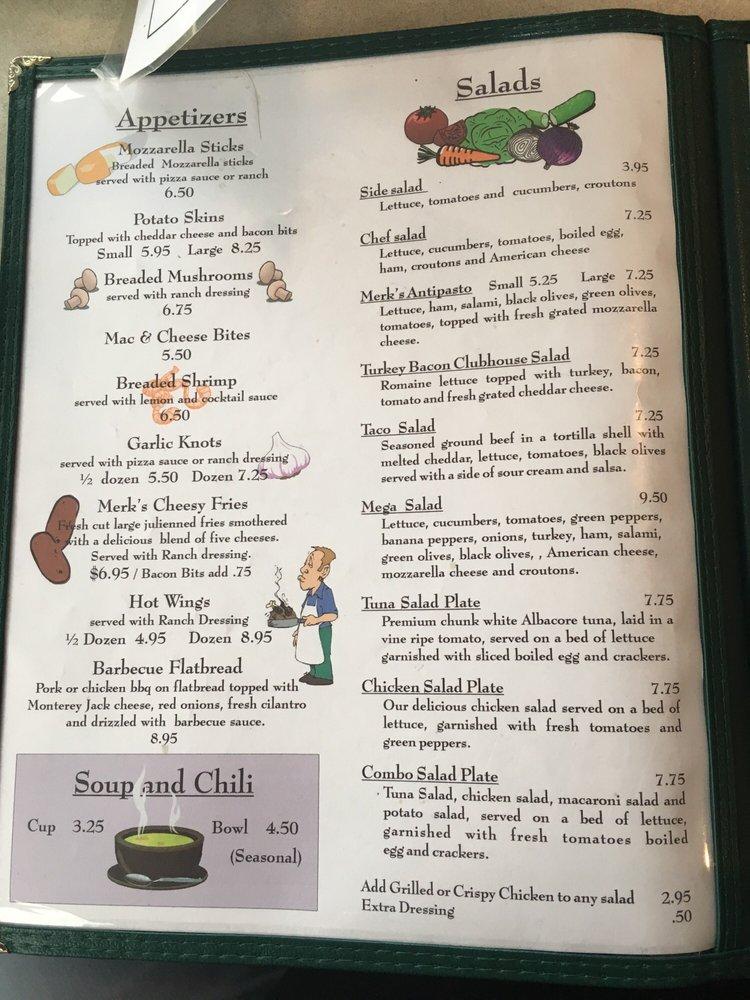 Appetizers
Mozzarella Sticks
Breaded Mozzarella sticks
served with pizza sauce or ranch
6.50
Potato Skins
Topped with cheddar cheese and bacon bits
Small 5.95 Large 8.25
Breaded Mushrooms
served with ranch dressing
6.75
Mac & Cheese Bites
5.50
Breaded Shrimp
served with lemon and cocktail sauce
6.50
Garlic Knots
served with pizza sauce or ranch dressing
½ dozen 5.50 Dozen 7.25
Merk's Cheesy Fries
Fresh cut large julienned fries smothered
with a delicious blend of five cheeses.
Served with Ranch dressing.
$6.95 / Bacon Bits add .75
Hot Wings
served with Ranch Dressing
½ Dozen 4.95 Dozen 8.95
Barbecue Flatbread
Pork or chicken bbq on flatbread topped with
Monterey Jack cheese, red onions, fresh cilantro
and drizzled with barbecue sauce.
8.95
Soup and Chili
Cup 3.25 Bowl 4.50
(Seasonal)
Salads
Side salad 3.95
Lettuce, tomatoes and cucumbers, croutons
Chef salad 7.25
Lettuce, cucumbers, tomatoes, boiled egg,
ham, croutons and American cheese
Merk's Antipasto Small 5.25 Large 7.25
Lettuce, ham, salami, black olives, green olives,
tomatoes, topped with fresh grated mozzarella
cheese.
Turkey Bacon Clubhouse Salad 7.25
Romaine lettuce topped with turkey, bacon,
tomato and fresh grated cheddar cheese.
Taco Salad 7.25
Seasoned ground beef in a tortilla shell with
melted cheddar, lettuce, tomatoes, black olives
served with a side of sour cream and salsa.
Mega Salad 9.50
Lettuce, cucumbers, tomatoes, green peppers,
banana peppers, onions, turkey, ham, salami,
green olives, black olives, , American cheese,
mozzarella cheese and croutons.
Tuna Salad Plate 7.75
Premium chunk white Albacore tuna, laid in a
vine ripe tomato, served on a bed of lettuce
garnished with sliced boiled egg and crackers.
Chicken Salad Plate 7.75
Our delicious chicken salad served on a bed of
lettuce, garnished with fresh tomatoes and
green peppers.
Combo Salad Plate 7.75
Tuna Salad, chicken salad, macaroni salad and
potato salad, served on a bed of lettuce,
garnished with fresh tomatoes boiled
egg and crackers.
Add Grilled or Crispy Chicken to any salad 2.95
Extra Dressing .50